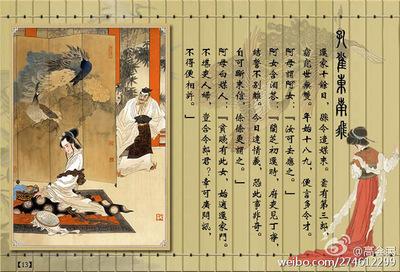 孔雀東南飛
還家十餘日，縣令遣媒來。雲有第三郎，
窈窕世無雙。年始十八九，便言多令才。
阿母謂阿女：「汝可去應之。」
阿女含淚答：「蘭芝初還時，府吏見丁寧，
結誓不別離。今日違情義，恐此事非奇。
自可斷來信，徐徐更謂之。」
阿母白媒人：「貧賤有此女，始適還家門。
不堪吏人婦，豈合令郎君？幸可廣問訊，
不得便相許。」
【13】
weibo.com/274612299